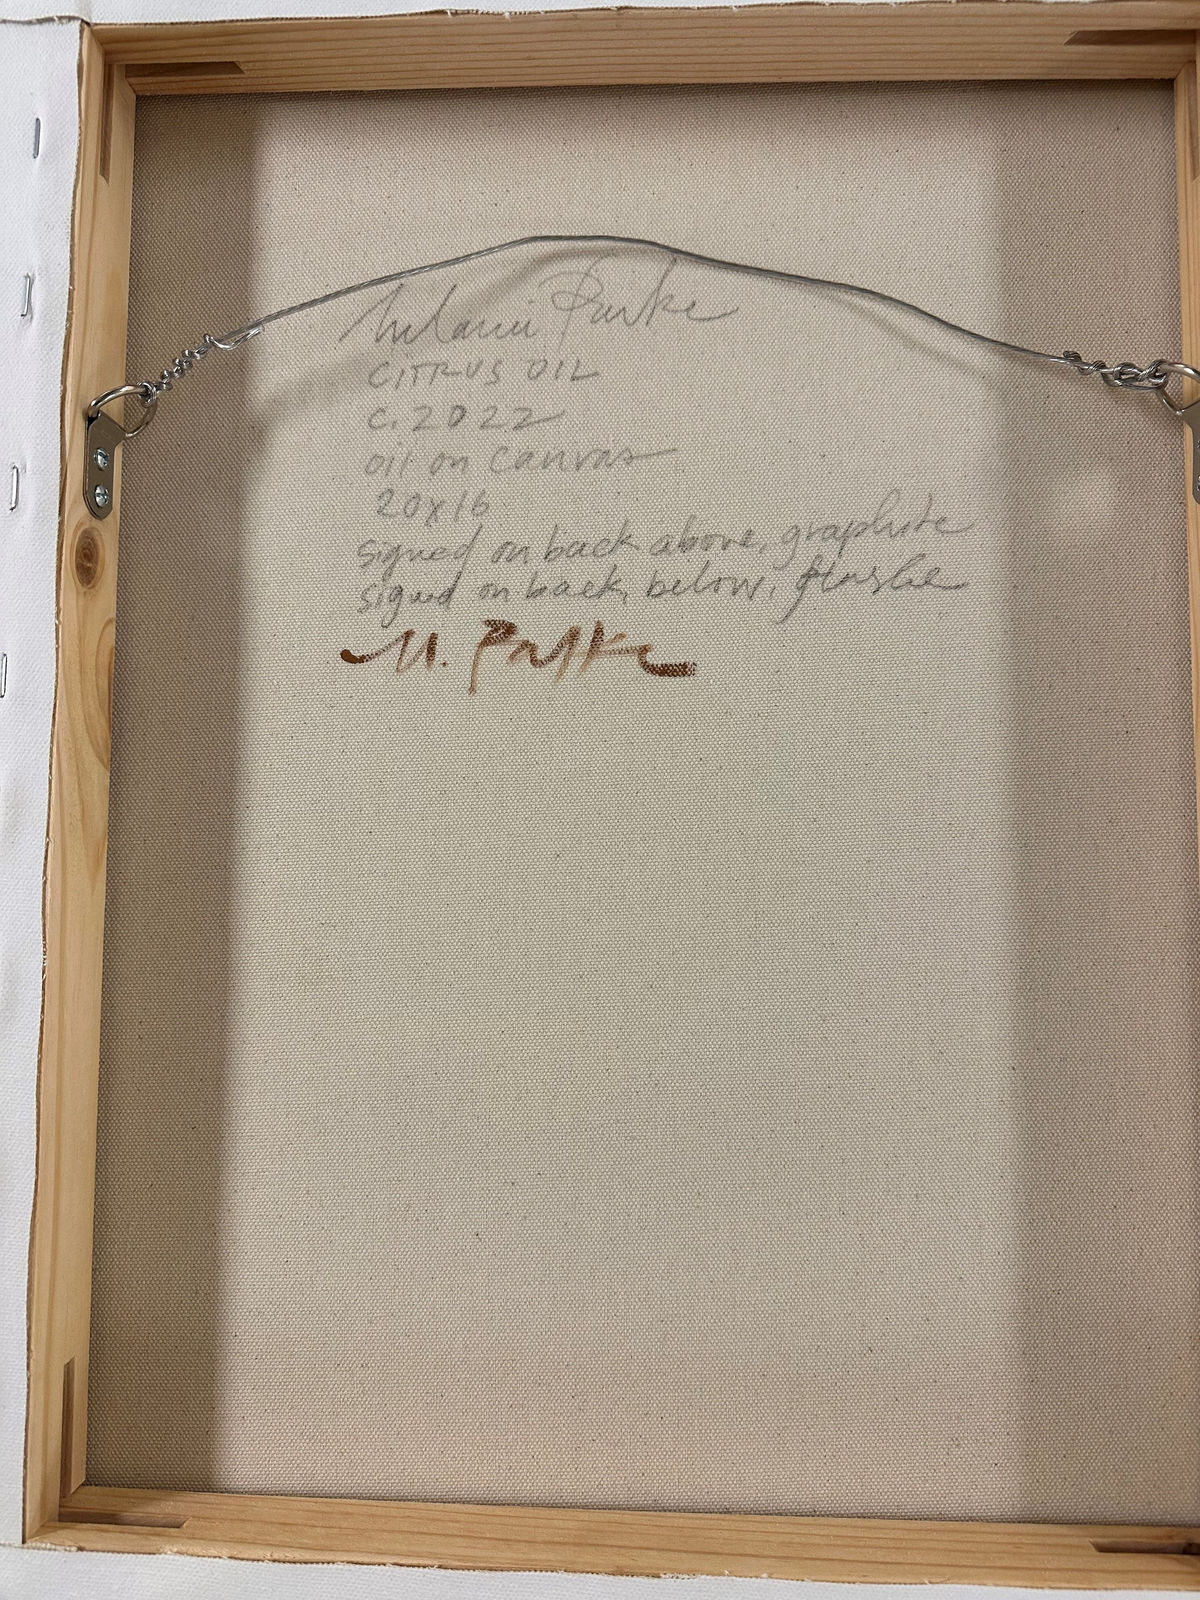 Melanie Parke
CITRUS OIL
C. 2022
oil on canvas
20x16
signed on back above, graphite
signed on back, below, flashe
M. Parke